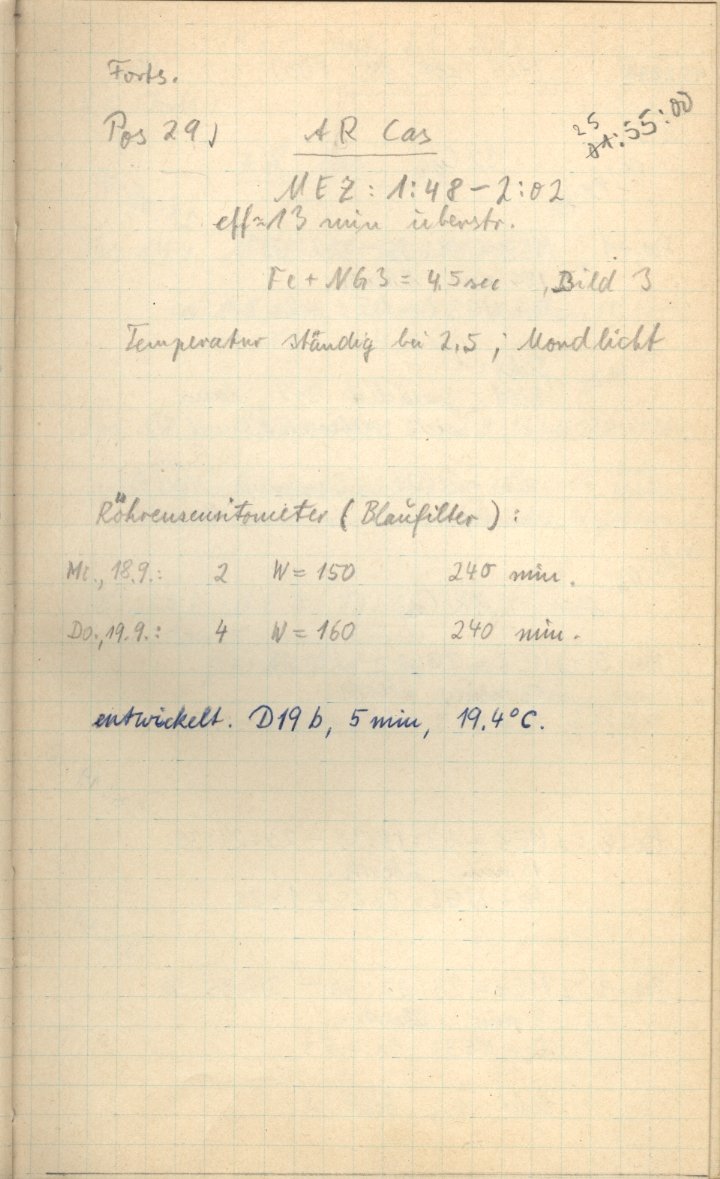 Forts.
Pos 29) AR Cas 25:55:00
MEZ: 1:48 – 2:02
eff≈13 min überstr.
Fe + NG3 = 4,5 sec , Bild 3
Temperatur ständig bei 2,5 ; Mondlicht
Röhrensensitometer (Blaufilter):
Mi., 18.9.: 2 W = 150 240 min.
Do., 19.9.: 4 W = 160 240 min.
entwickelt. D19b, 5 min, 19,4°C.